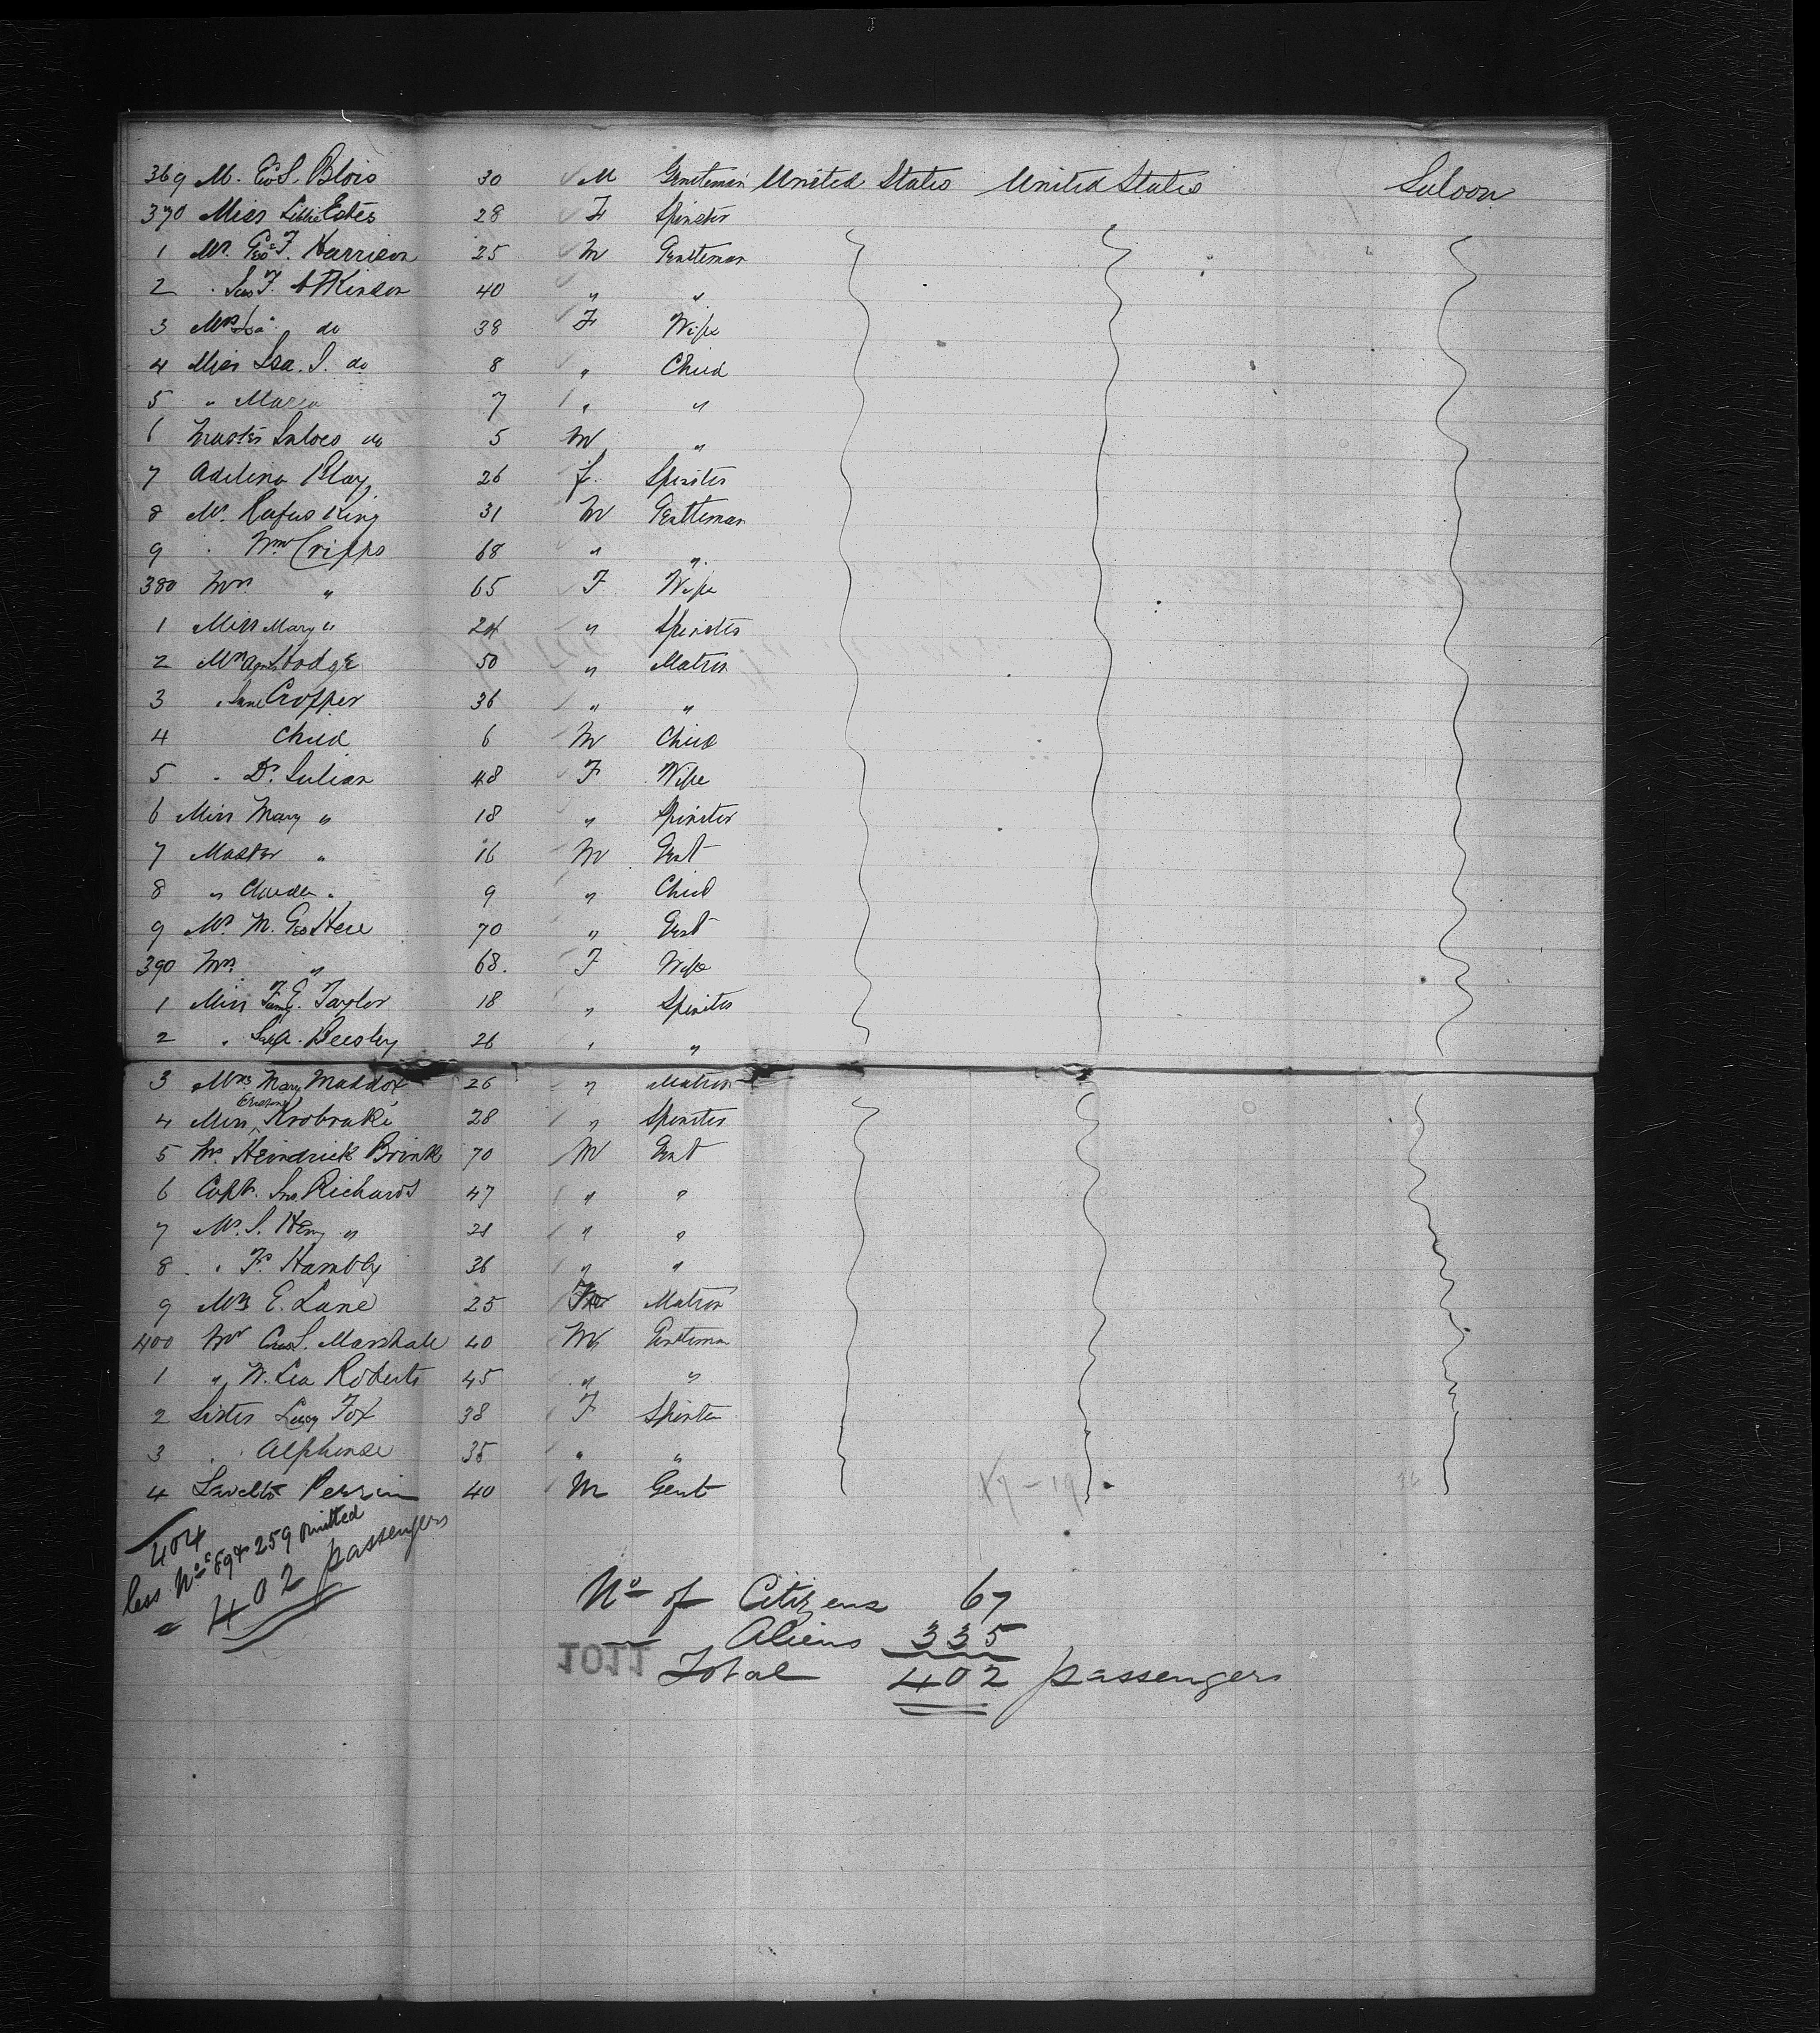 369 Mr. Geo S. Blois 30 M Gentleman United States United States Saloon
370 Miss Lillie Estes 28 F Spinster
1 Mr. Geo F. Harrison 25 M Gentleman
2 " F. Atkinson 40 " "
3 Mrs do 38 F Wife
4 Miss Isa. S. do 8 " Child
5 " Maria 7 " "
6 Master do 5 M "
7 Adelina Play 26 F. Spinster
8 Mr. Rufus King 31 M Gentleman
9 " Wm Cripps 68 " "
380 Mrs. " 65 F Wife
1 Miss Mary " 24 " Spinster
2 Mrs Agnes Hodge 50 " Matron
3 " Jane Cropper 36 " "
4 Child 6 M Child
5 " Dr. Julian 48 F Wife
6 Miss Mary " 18 " Spinster
7 Master " 16 M Gent
8 " Claude " 9 " Child
9 Mr. M. Geo 70 " Gent
390 Mrs. " 68. F Wife
1 Miss Fanny E. Taylor 18 " Spinster
2 " A. Beesley 26 " "
3 Mrs Mary Maddox 26 " Matron
4 Miss Krobraki 28 " Spinster
5 Mr. Heindrick Brink 70 M Gent
6 Capt. Jno. Richards 47 " "
7 Mr. S. Henry " 21 " "
8 " F. Hambly 36 " "
9 Mrs E. Lane 25 F Matron
400 Mr Chas S. Marshall 40 M Gentleman
1 " W. Lea Roberts 45 " "
2 Sister Fox 38 F Spinster
3 " Alphonse 35 " "
4 Perrin 40 M Gent
404
less Nos 89 & 259 omitted
= 402 passengers
No of Citizens 67
" Aliens 335
1011 Total 402 passengers